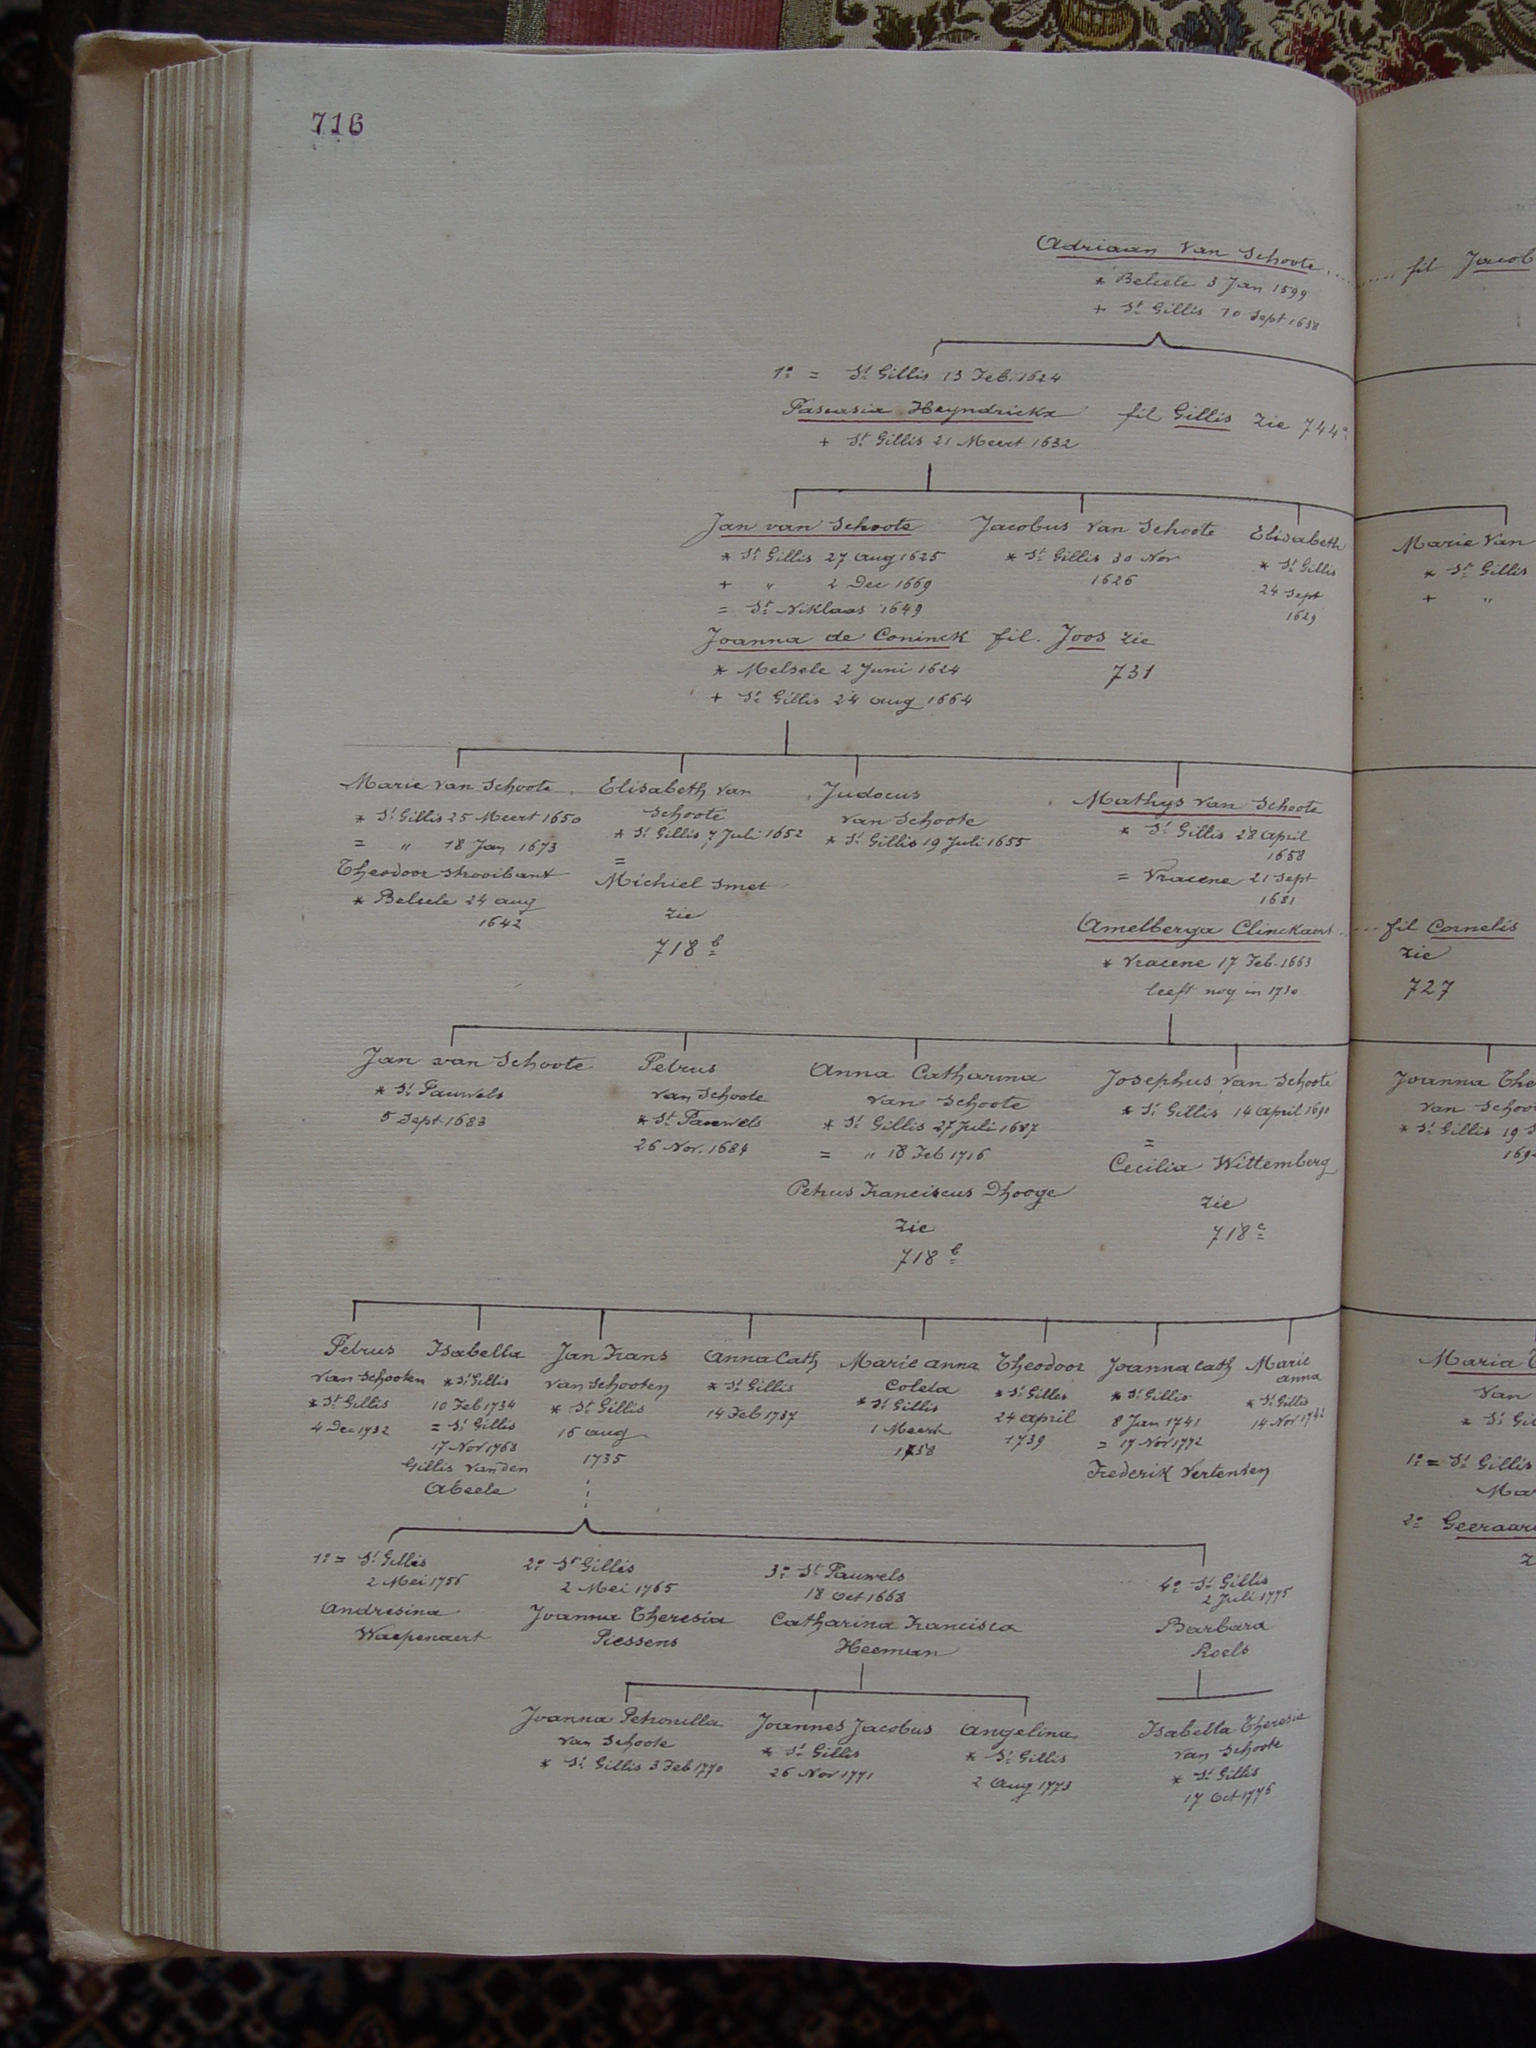 716
Adriaan Van Schoote ....... fil Jacob
* Belsele 3 Jan 1599
+ St Gillis 10 Sept 1638
1e = St Gillis 13 Feb. 1624
Pascasia Heyndrickx fil Gillis zie 744a
+ St Gillis 21 Meert 1632
Jan van Schoote
* St Gillis 27 aug 1625
+ " 2 Dec 1669
= St Niklaas 1649
Joanna de Coninck fil. Joos zie
731
* Melsele 2 Juni 1624
+ St Gillis 24 aug 1664
Jacobus van Schoote
* St Gillis 30 Nov
1626
Elisabeth
* St Gillis
24 Sept
1629
Marie Van
* St Gillis
+ "
Marie van Schoote
* St Gillis 25 Meert 1650
= " 18 Jan 1673
Theodoor Strooibant
* Belsele 24 aug
1642
Elisabeth van
Schoote
* St Gillis 7 Juli 1652
=
Michiel Smet
zie
718 b
Judocus
van Schoote
* St Gillis 19 Juli 1655
Mathys van Schoote
* St Gillis 28 april
1658
= Vracene 21 Sept
1681
Amelberga Clinckaert .... fil Cornelis
zie
727
* Vracene 17 Feb. 1663
leeft nog in 1730
Jan van Schoote
* St Pauwels
5 Sept 1683
Petrus
van Schoote
* St Pauwels
26 Nov. 1684
Anna Catharina
van Schoote
* St Gillis 27 Juli 1687
= " 18 Feb 1716
Petrus Franciscus Dhooge
zie
718 b
Josephus van Schoote
* St Gillis 14 april 1690
=
Cecilia Wittemberg
zie
718 c
Joanna The
van Schoo
* St Gillis 19 S
169
Petrus
van Schooten
* St Gillis
4 Dec 1732
Isabella
* St Gillis
10 Feb 1734
= St Gillis
17 Nov 1768
Gillis vanden
Abeele
Jan Frans
van Schooten
* St Gillis
16 aug
1735
Anna Cath
* St Gillis
14 Feb 1737
Marie anna
Coleta
* St Gillis
1 Meert
1738
Theodoor
* St Gilles
24 april
1739
Joanna Cath
* St Gillis
8 Jan 1741
= 17 Nov 1772
Frederik Vertenten
Marie
anna
* St Gillis
14 Nov 1742
Maria
Van
* St Gil
1e = St Gillis
Mar
2e Geeraar
1e = St Gillis
2 Mei 1756
Andresina
Waepenaert
2e St Gillis
2 Mei 1765
Joanna Theresia
Piessens
3e St Pauwels
18 Oct 1668
Catharina Francisca
Heeman
4e St Gillis
2 Juli 1775
Barbara
Roels
Joanna Petronilla
van Schoote
* St Gillis 3 Feb 1770
Joannes Jacobus
* St Gillis
26 Nov 1771
Angelina
* St Gillis
2 Aug 1773
Isabella Theresia
van Schoote
* St Gillis
17 Oct 1776